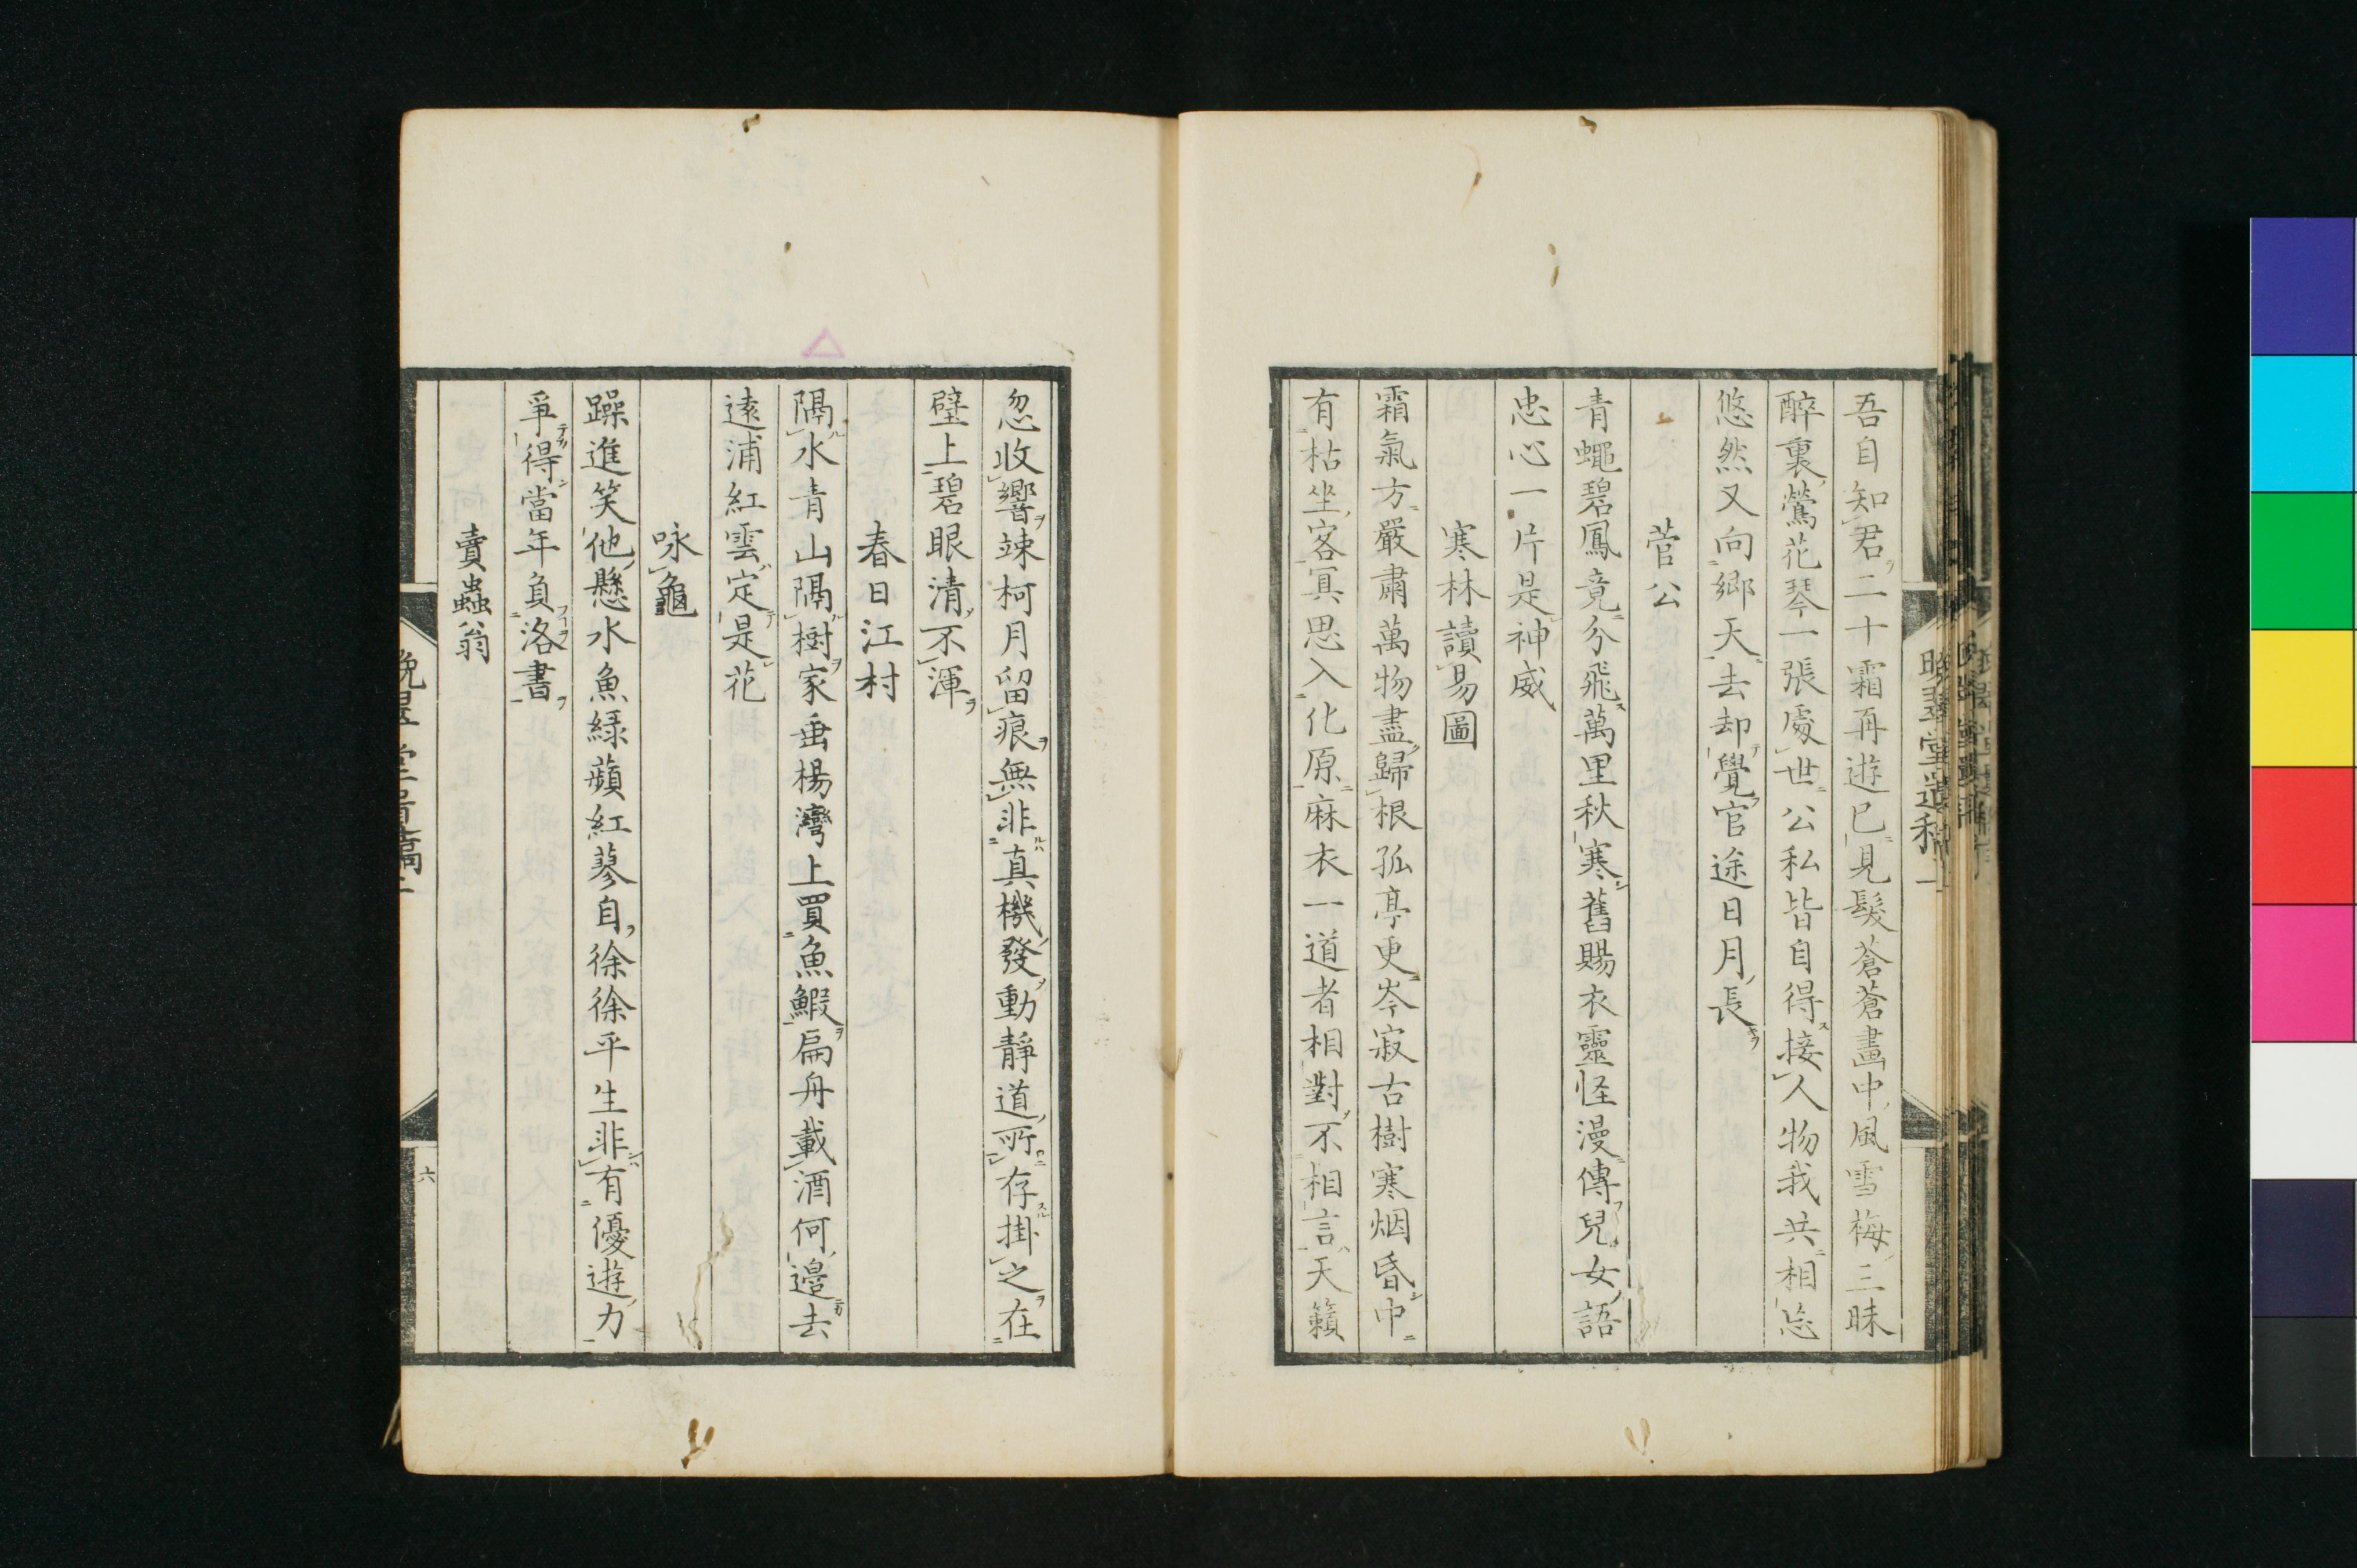 吾自知君二十霜再遊已見髮蒼蒼畫中風雪梅三昧
醉裏鶯花琴一張處世公私皆自得接人物我共相忘
悠然又向鄉天去却覺官途日月長
菅公
青蠅碧鳳竟分飛萬里秋寒舊賜衣靈怪漫傳兒女語
忠心一片是神威
寒林讀易圖
霜氣方嚴肅萬物盡歸根孤亭更岑寂古樹寒烟昏中
有枯坐客冥思入化原麻衣一道者相對不相言天籟
忽收響竦柯月留痕無非真機發動靜道所存掛之在
壁上碧眼清不渾
春日江村
隔水青山隔樹家垂楊灣上買魚鰕扁舟載酒何邊去
遠浦紅雲定是花
咏龜
躁進笑他懸水魚綠蘋紅蓼自徐徐平生非有優遊力
爭得當年負洛書
賣蟲翁
六